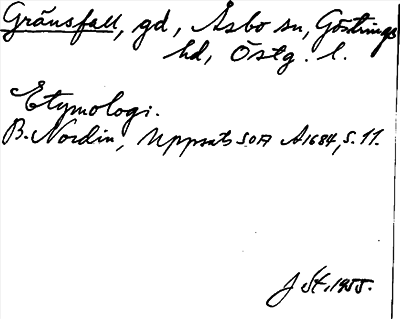 Gränsfall, gd, Åsbo sn, Göstrings
hd, Östg. l.
Etymologi.
B. Nordin, Uppsats SOA A1684, s. 11.
J St. 1955.